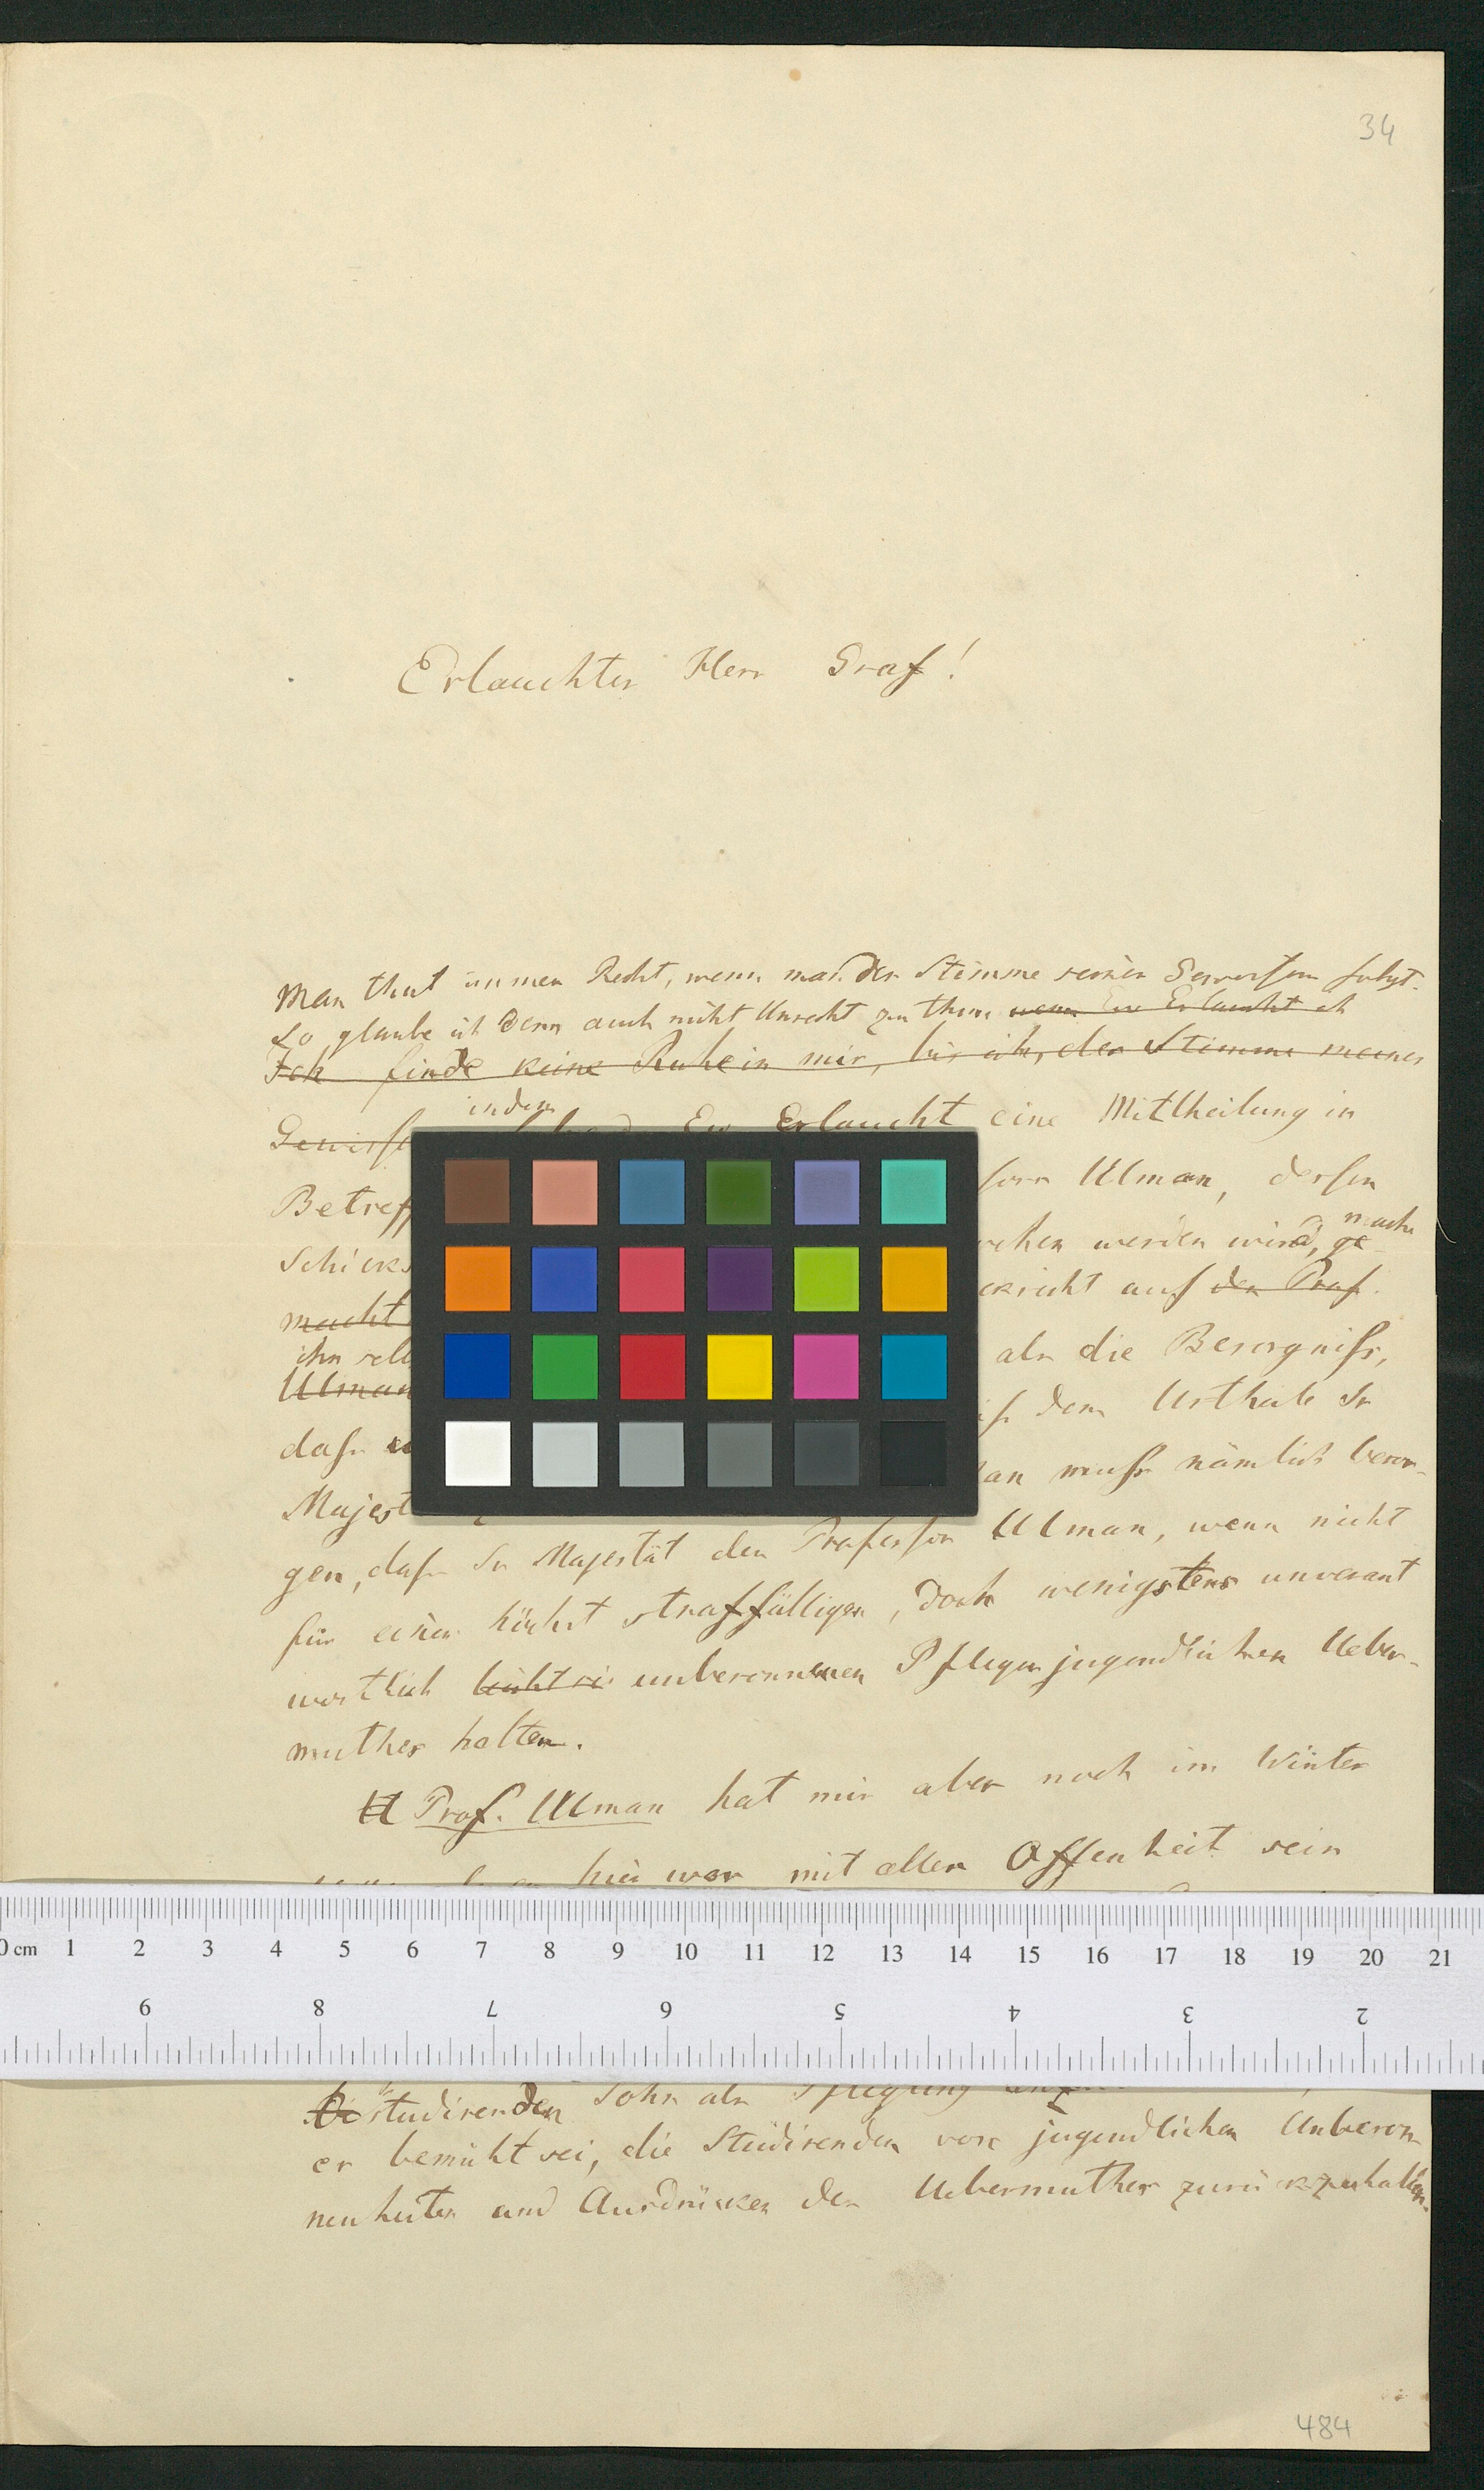 34
Erlauchter Herr Graf!
Man thut immer Recht, wenn man der Stimme seines Gewissens folgt.
So glaube ich denn auch nicht Unrecht zu thun wenn Ew Erlaucht ich
Ich finde keine Ruhe in mir, bis ich, der Stimme meines
indem
Ew Erlaucht eine Mittheilung in
Betreff Ulman, dessen
mache
Schicks werden wird, ge
macht auf den Prof.
ihn als die Besorgniss,
Ulman dem Urtheile Sr
dass muss nämlich besor-
Majest
gen, dass Sr Majestät den Professor Ulman, wenn nicht
für einen höchst straffälligen, doch wenigstens unverant
wortlich unbesonnenen Pfleger jugendlichen Ueber-
muthes halten.
Prof. Ulman hat mir aber noch im Winter
hier war mit aller Offenheit sein
0 cm 1 2 3 4 5 6 7 8 9 10 11 12 13 14 15 16 17 18 19 20 21
9 8 7 6 5 4 3 2
studirenden Sohn als Pflegling
er bemüht sei, die Studirenden von jugendlichen Unbeson
nenheiten und Ausdrücken des Uebermuthes zurückzuhalten.
484